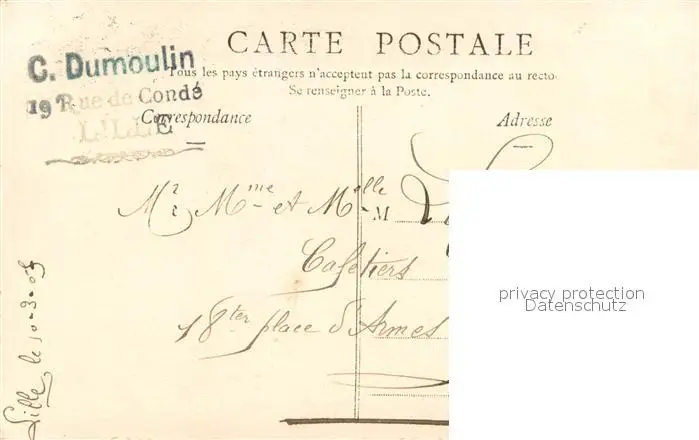 CARTE POSTALE
Tous les pays étrangers n'acceptent pas la correspondance au recto.
Se renseigner à la Poste.
C. Dumoulin
19 Rue de Condé
LILLE
Correspondance
Adresse
Mr Mme et Melle M
Cafetiers
18ter place d'Armes
Lille, le 10-3-05
privacy protection
Datenschutz